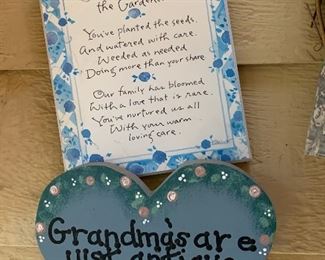 the Gardener
You've planted the seeds.
And watered with care.
Weeded as needed
Doing more than your share
Our family has bloomed
With a love that is rare.
You've nurtured us all
With your warm
loving care.
Grandma's are
just antique